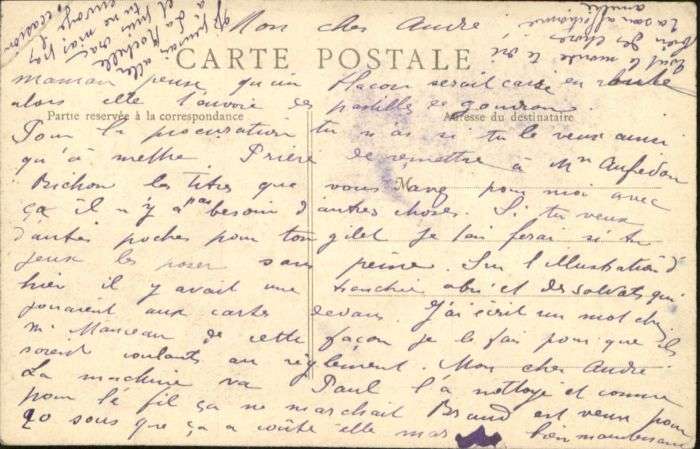 Mon cher André
CARTE POSTALE
maman pense qu'un flacon serait cassé en route
alors elle t'envoie des pastilles de goudron.
Partie réservée à la correspondance
Adresse du destinataire
Pour la procuration tu n'as si tu le veux aussi
qu'à mettre. Prière de remettre à Mr
Bichon les titres que vous pour moi avec
ça il n'y a pas besoin d'autres choses. Si tu veux
d'autres poches pour ton gilet je t'en ferai si tu
peux les poser sans peine. Sur l'illustration d'
hier il y avait une tranchée abri et des soldats qui
jouaient aux cartes devant. J'ai écrit un mot chez
Mr Manceau de cette façon je le fais pour que ils
soient coulants au règlement. Mon cher André
La machine va Paul l'a nettoyé et comme
pour le fil ça ne marchait Braud est venu pour
40 sous que ça a coûté elle mar bien maintenant
tout le monde te dit
bien des choses
ta sœur affectionnée